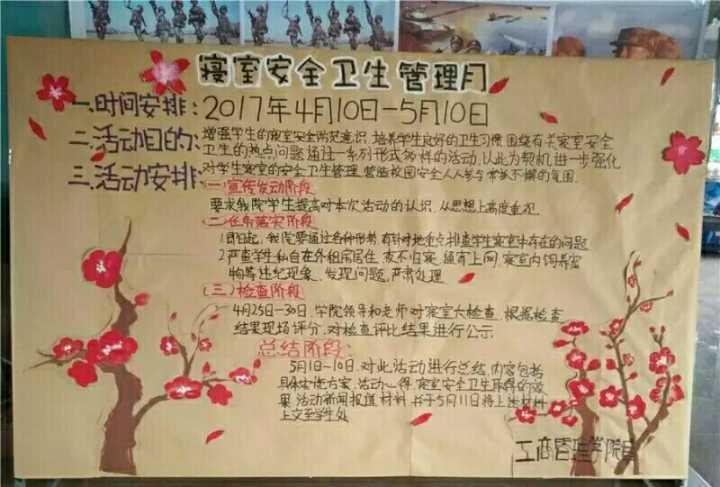 寝室安全卫生管理月
一.时间安排:2017年4月10日-5月10日
二.活动目的:增强学生的寝室安全防范意识,培养学生良好的卫生习惯,围绕有关寝室安全
卫生的热点问题,通过一系列形式多样的活动,以此为契机进一步强化
三.活动安排:对学生寝室的安全卫生管理,营造校园安全人人参与常抓不懈的氛围.
(一)宣传发动阶段
要求我院学生提高对本次活动的认识,从思想上高度重视
(二)任务落实阶段
1.即日起,我院要通过各种形势,有针对地重点排查学生寝室中存在的问题
2.严查学生私自在外租房居住,夜不归寝,通宵上网,寝室内饲养宠
物等违纪现象,发现问题,严肃处理
(三)检查阶段
4月25日-30日,学院领导和老师对寝室大检查,根据检查
结果现场评分,对检查评比结果进行公示
总结阶段:
5月1日-10日,对此活动进行总结,内容包括
具体实施方案,活动心得,寝室安全卫生取得的效
果,活动新闻报道材料,并于5月11日将上述材料
上交至学生处
工商管理学院宣